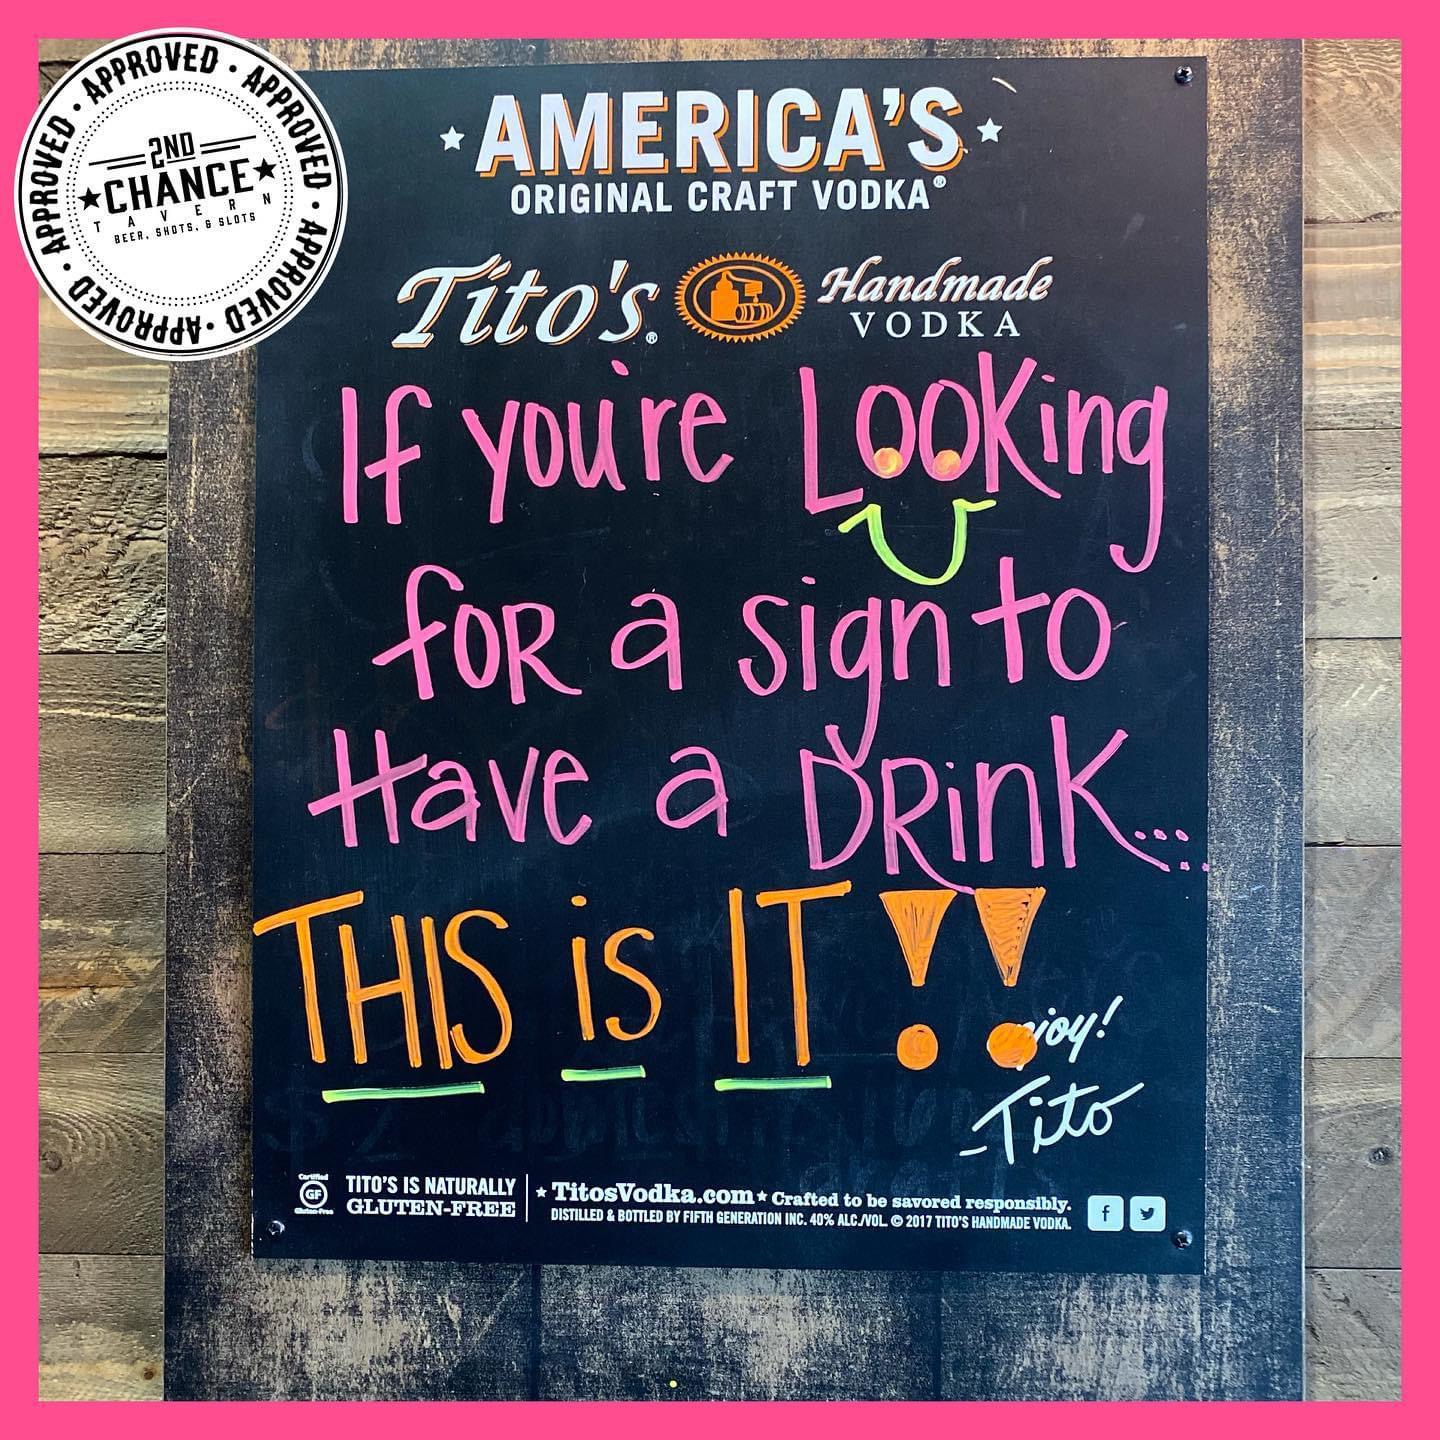 APPROVED • APPROVED • APPROVED • APPROVED • APPROVED • APPROVED •
2ND
CHANCE
TAVERN
BEER, SHOTS, & SLOTS
AMERICA'S
ORIGINAL CRAFT VODKA®
Tito's® Handmade
VODKA
If you're Looking
for a sign to
Have a Drink...
THIS is IT!!
Enjoy!
-Tito
Certified
GF
Gluten-Free
TITO'S IS NATURALLY
GLUTEN-FREE
TitosVodka.com ★ Crafted to be savored responsibly.
DISTILLED & BOTTLED BY FIFTH GENERATION INC. 40% ALC./VOL. © 2017 TITO'S HANDMADE VODKA.